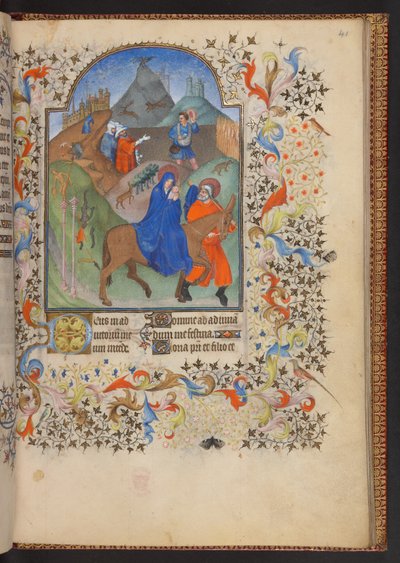 41
Deus in ad
iutoriu me
um intede
Domine ad adiuua
dum me festina.
Gloria pri et filio et